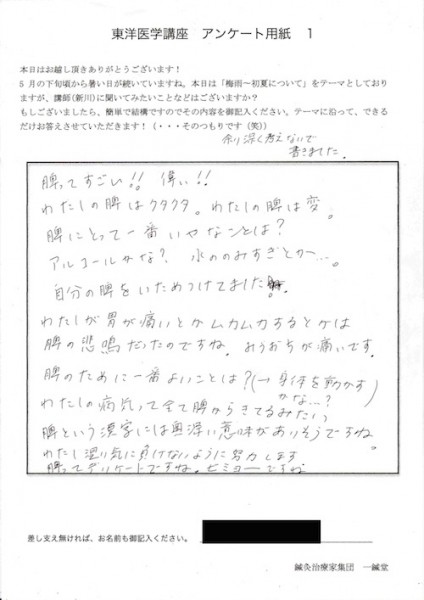 東洋医学講座 アンケート用紙 1
本日はお越し頂きありがとうございます！
5月の下旬頃から暑い日が続いていますね。本日は「梅雨〜初夏について」をテーマとしており
ますが、講師(新川)に聞いてみたいことなどはございますか？
もしございましたら、簡単で結構ですのでその内容を御記入ください。テーマに沿って、できる
だけお答えさせていただきます！（・・・そのつもりです（笑））
余り深く考えないで
書きました。
脾ってすごい!! 偉い!!
わたしの脾はクタクタ。わたしの脾は変。
脾にとって一番いやなことは？
アルコールかな？ 水ののみすぎとか…。
自分の脾をいためつけてました
わたしが胃が痛いとかムカムカするときは
脾の悲鳴だったのですね。おうおちが痛いです。
脾のために一番よいことは？(→身体を動かす
かな…？)
わたしの病気って全て脾からきてるみたいっ
脾という漢字には奥深い意味がありそうですね。
わたし湿い気に負けないように努力します
脾ってデリケートですね。ビミョーですね
差し支え無ければ、お名前も御記入ください。
鍼灸治療家集団 一鍼堂